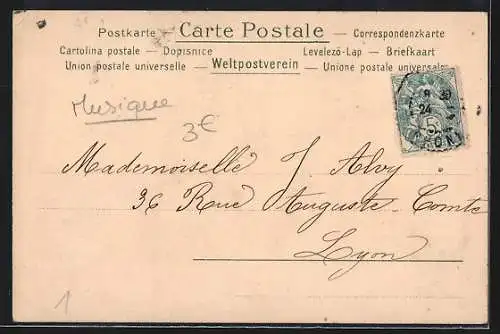 Postkarte — Carte Postale — Correspondenzkarte
Cartolina postale — Dopisnice Levelező-Lap — Briefkaart
Union postale universelle — Weltpostverein — Unione postale universale
Musique
3€
Mademoiselle J. Alvy
36 Rue Auguste-Comte
Lyon
1
5
24